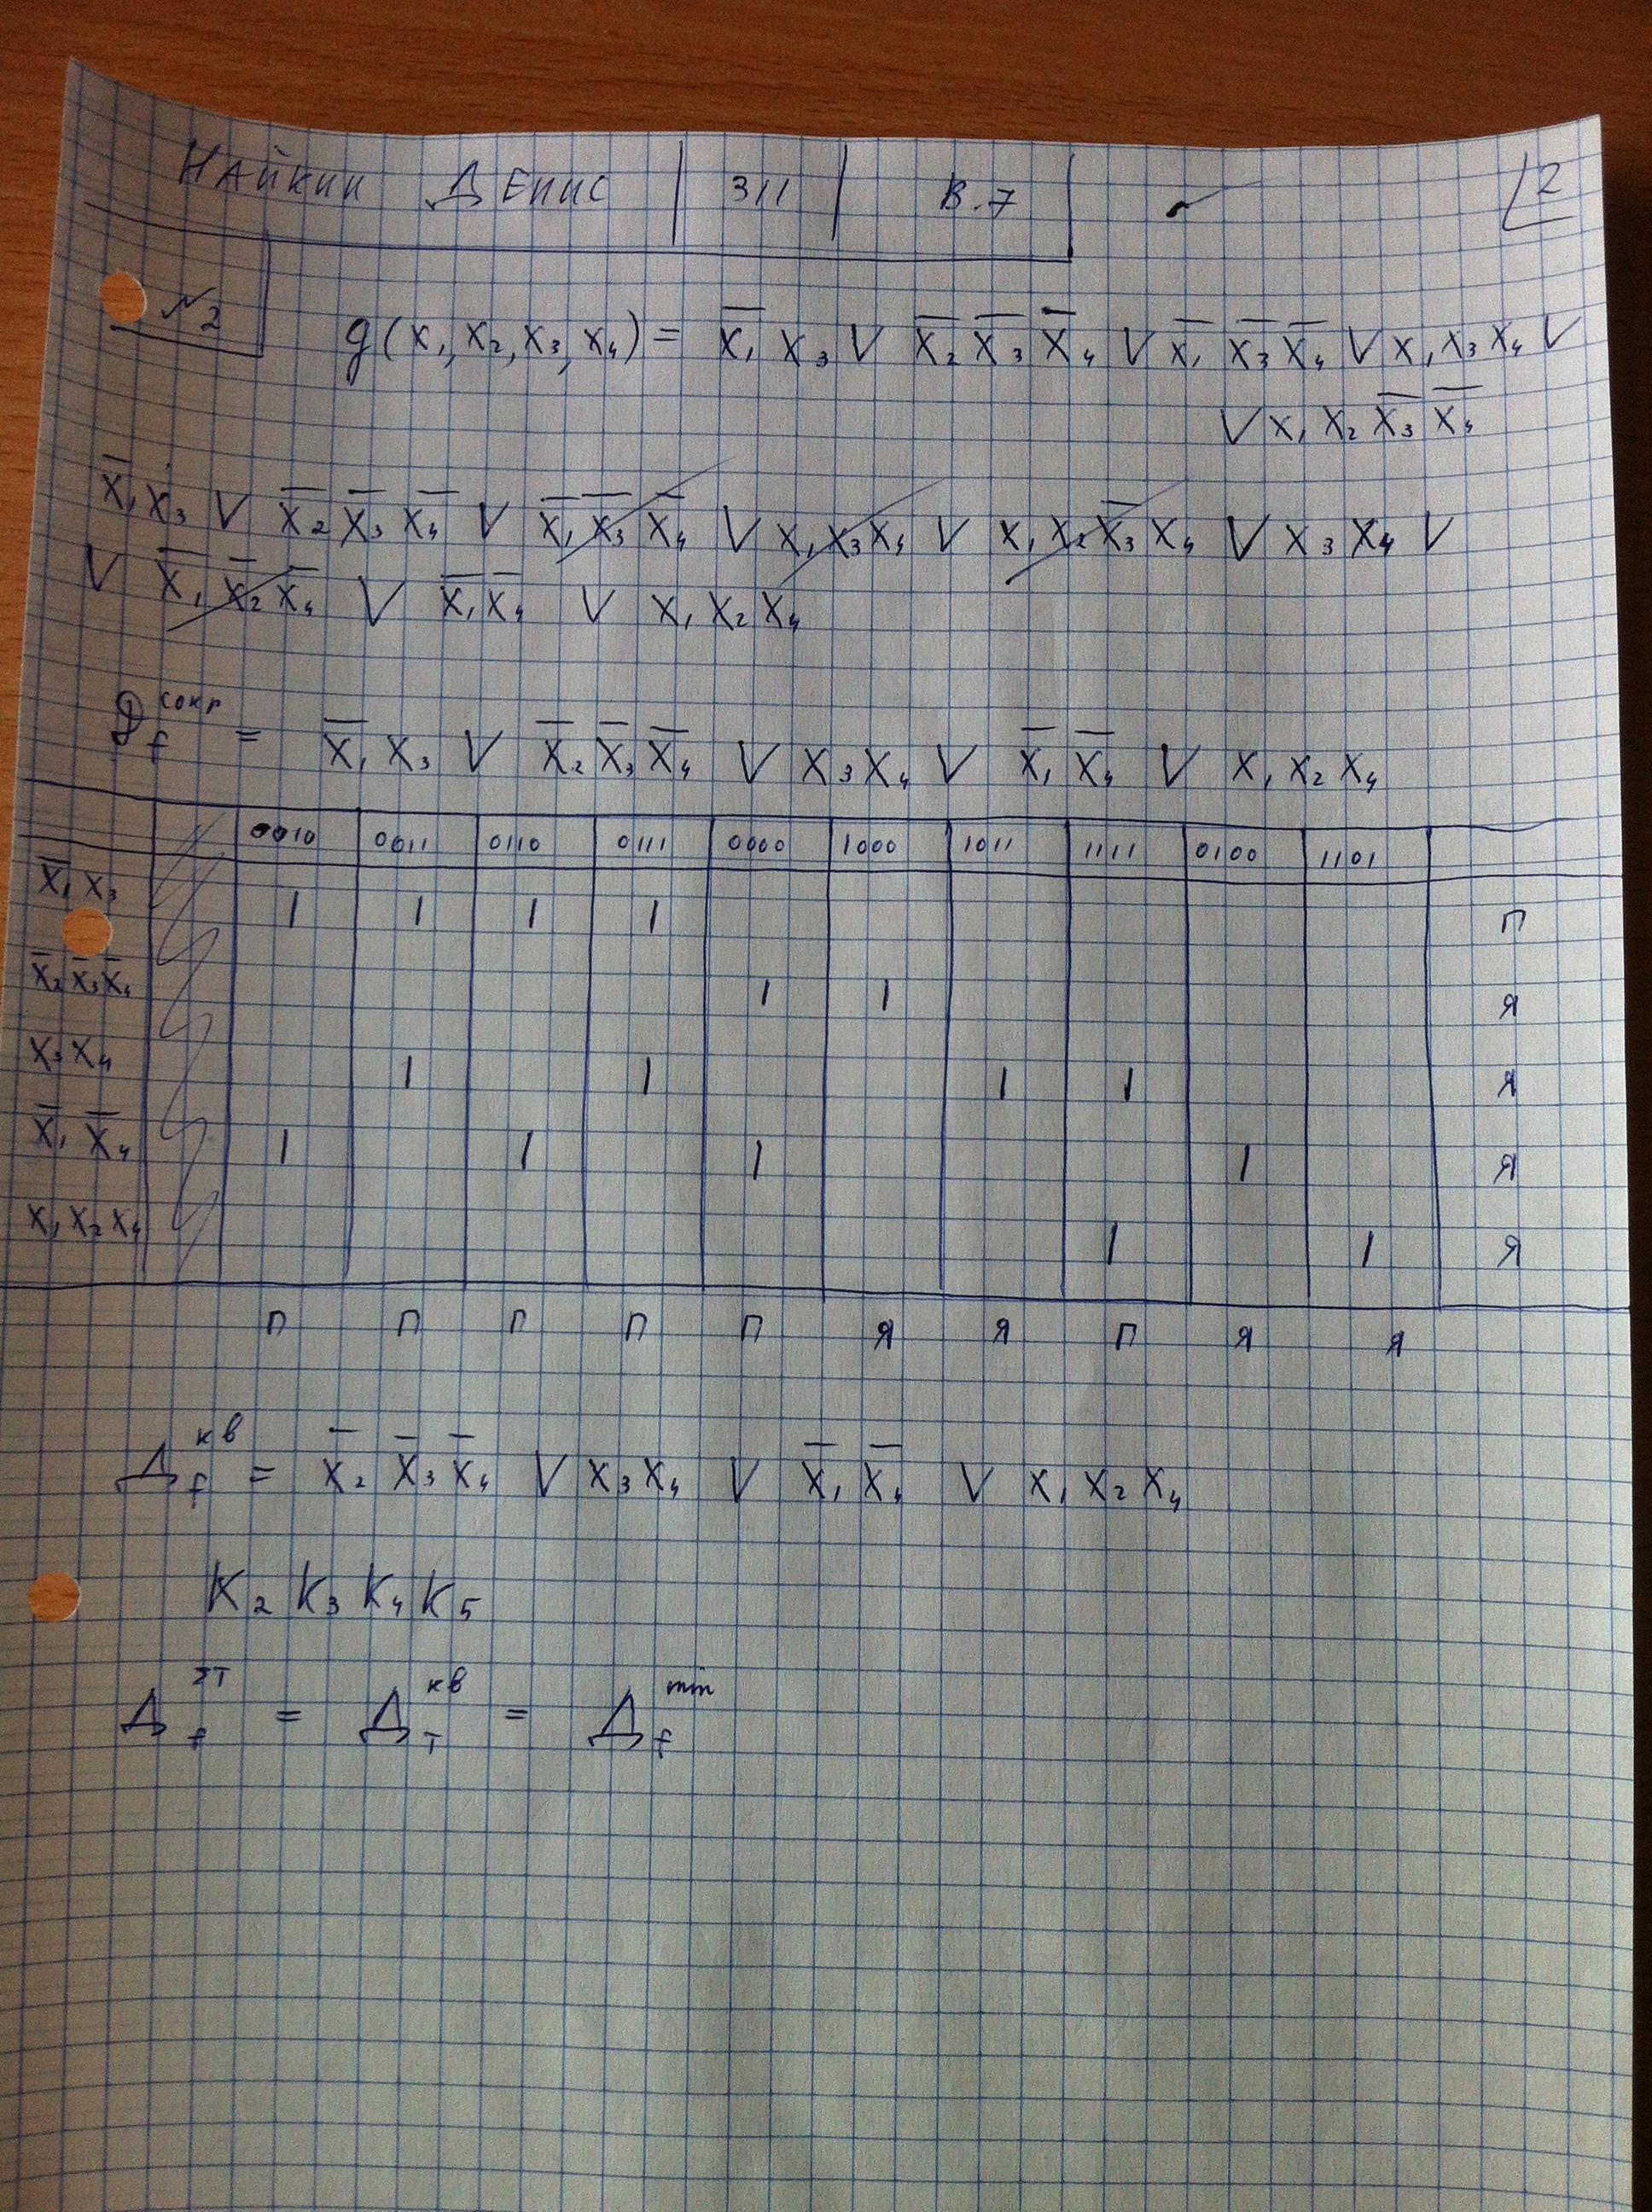 НАЙКИН ДЕНИС | 311 | В.7
∟2
№2
g(x₁,x₂,x₃,x₄) = x̅₁ x₃ V x̅₂ x̅₃ x̅₄ V x̅₁ x̅₃ x̅₄ V x₁ x₃ x₄ V
V x₁ x₂ x̅₃ x̅₄
x̅₁ x₃ V x̅₂ x̅₃ x̅₄ V x̅₁ x̅₃ x̅₄ V x₁ x₃ x₄ V x₁ x₂ x̅₃ x₄ V x₃ x₄ V
V x̅₁ x̅₂ x̅₄ V x̅₁ x̅₄ V x₁ x₂ x₄
D_f^сокр = x̅₁ x₃ V x̅₂ x̅₃ x̅₄ V x₃ x₄ V x̅₁ x̅₄ V x₁ x₂ x₄
0010 0011 0110 0111 0000 1000 1011 1111 0100 1101
x̅₁ x₃ 1 1 1 1 П
x̅₂ x̅₃ x̅₄ 1 1 Я
x₃ x₄ 1 1 1 1 Я
x̅₁ x̅₄ 1 1 1 1 Я
x₁ x₂ x₄ 1 1 Я
П П П П П Я Я П Я Я
Д_f^кв = x̅₂ x̅₃ x̅₄ V x₃ x₄ V x̅₁ x̅₄ V x₁ x₂ x₄
K₂ K₃ K₄ K₅
Д_f^ΣT = Д_T^кв = Д_f^min